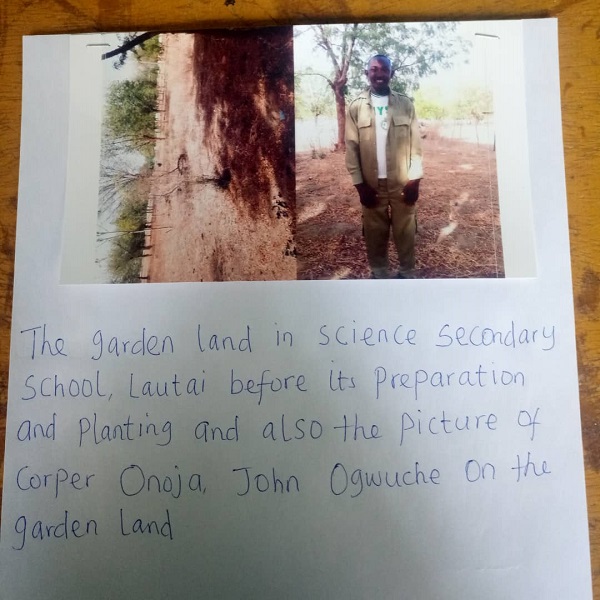 The garden land in science secondary
school, Lautai before its preparation
and planting and also the picture of
Corper Onoja, John Ogwuche on the
garden land